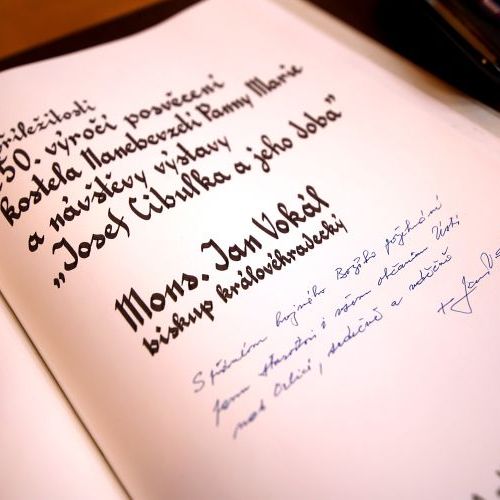 příležitosti
250. výročí posvěcení
kostela Nanebevzetí Panny Marie
a návštěvy výstavy
„Josef Cibulka a jeho doba"
Mons. Jan Vokál
biskup královéhradecký
S přáním hojného Božího požehnání
panu starostovi i všem občanům Ústí
nad Orlicí, srdečně a vděčně
+ Jan